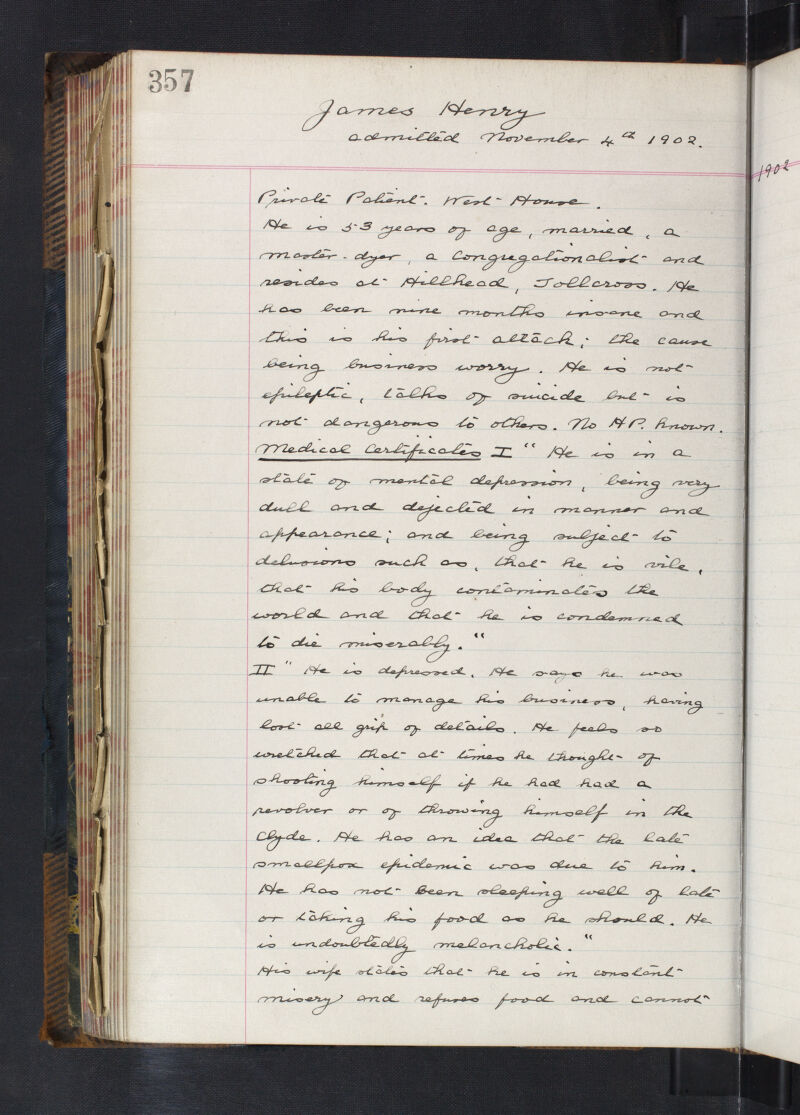 357
James Henry
admitted November 4th 1902.
1902
Private Patient. West House.
He is 53 years of age, married, a
master-dyer, a Congregationalist and
resides at Hillhead, Tollcross. He
has been nine months insane and
this is his first attack; the cause
being business worry. He is not
epileptic, talks of suicide but is
not dangerous to others. No H.P. known.
Medical Certificates I "He is in a
state of mental depression, being very
dull and dejected in manner and
appearance; and being subject to
delusions such as, that he is vile,
that his body contaminates the
world and that he is condemned
to die miserably."
II "He is depressed. He says he was
unable to manage his business, having
lost all grip of details. He feels so
wretched that at times he thought of
shooting himself if he had had a
revolver or of throwing himself in the
Clyde. He has an idea that the late
smallpox epidemic was due to him.
He has not been sleeping well of late
or taking his food as he should. He
is undoubtedly melancholic."
His wife states that he is in constant
misery and refuses food and cannot